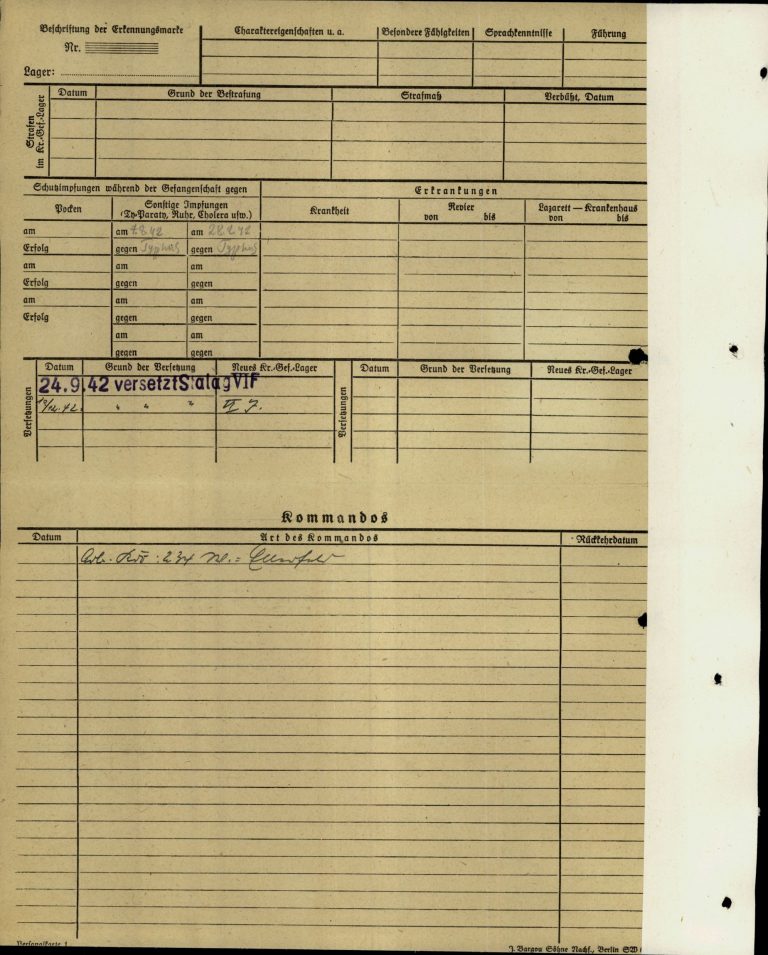 Beschriftung der Erkennungsmarke
Nr.
Lager:
Charaktereigenschaften u. a.
Besondere Fähigkeiten
Sprachkenntnisse
Führung
Strafen
im Kr.-Gef.-Lager
Datum
Grund der Bestrafung
Strafmaß
Verbüßt, Datum
Schutzimpfungen während der Gefangenschaft gegen
Erkrankungen
Pocken
Sonstige Impfungen
(Ty-Paraty, Ruhr, Cholera usw.)
Krankheit
Revier
von bis
Lazarett — Krankenhaus
von bis
am am 7.8.42 am 28.2.42
Erfolg gegen Typhus gegen Typhus
am am am
Erfolg gegen gegen
am am am
Erfolg gegen gegen
am am
gegen gegen
Versetzungen
Datum Grund der Versetzung Neues Kr.-Gef.-Lager
24.9.42 versetzt Stalag VI F
" " " VI J.
Versetzungen
Datum Grund der Versetzung Neues Kr.-Gef.-Lager
Kommandos
Datum Art des Kommandos Rückkehrdatum
Arb. Kdo: 234
Personalkarte 1
J. Bargou Söhne Nachf., Berlin SW